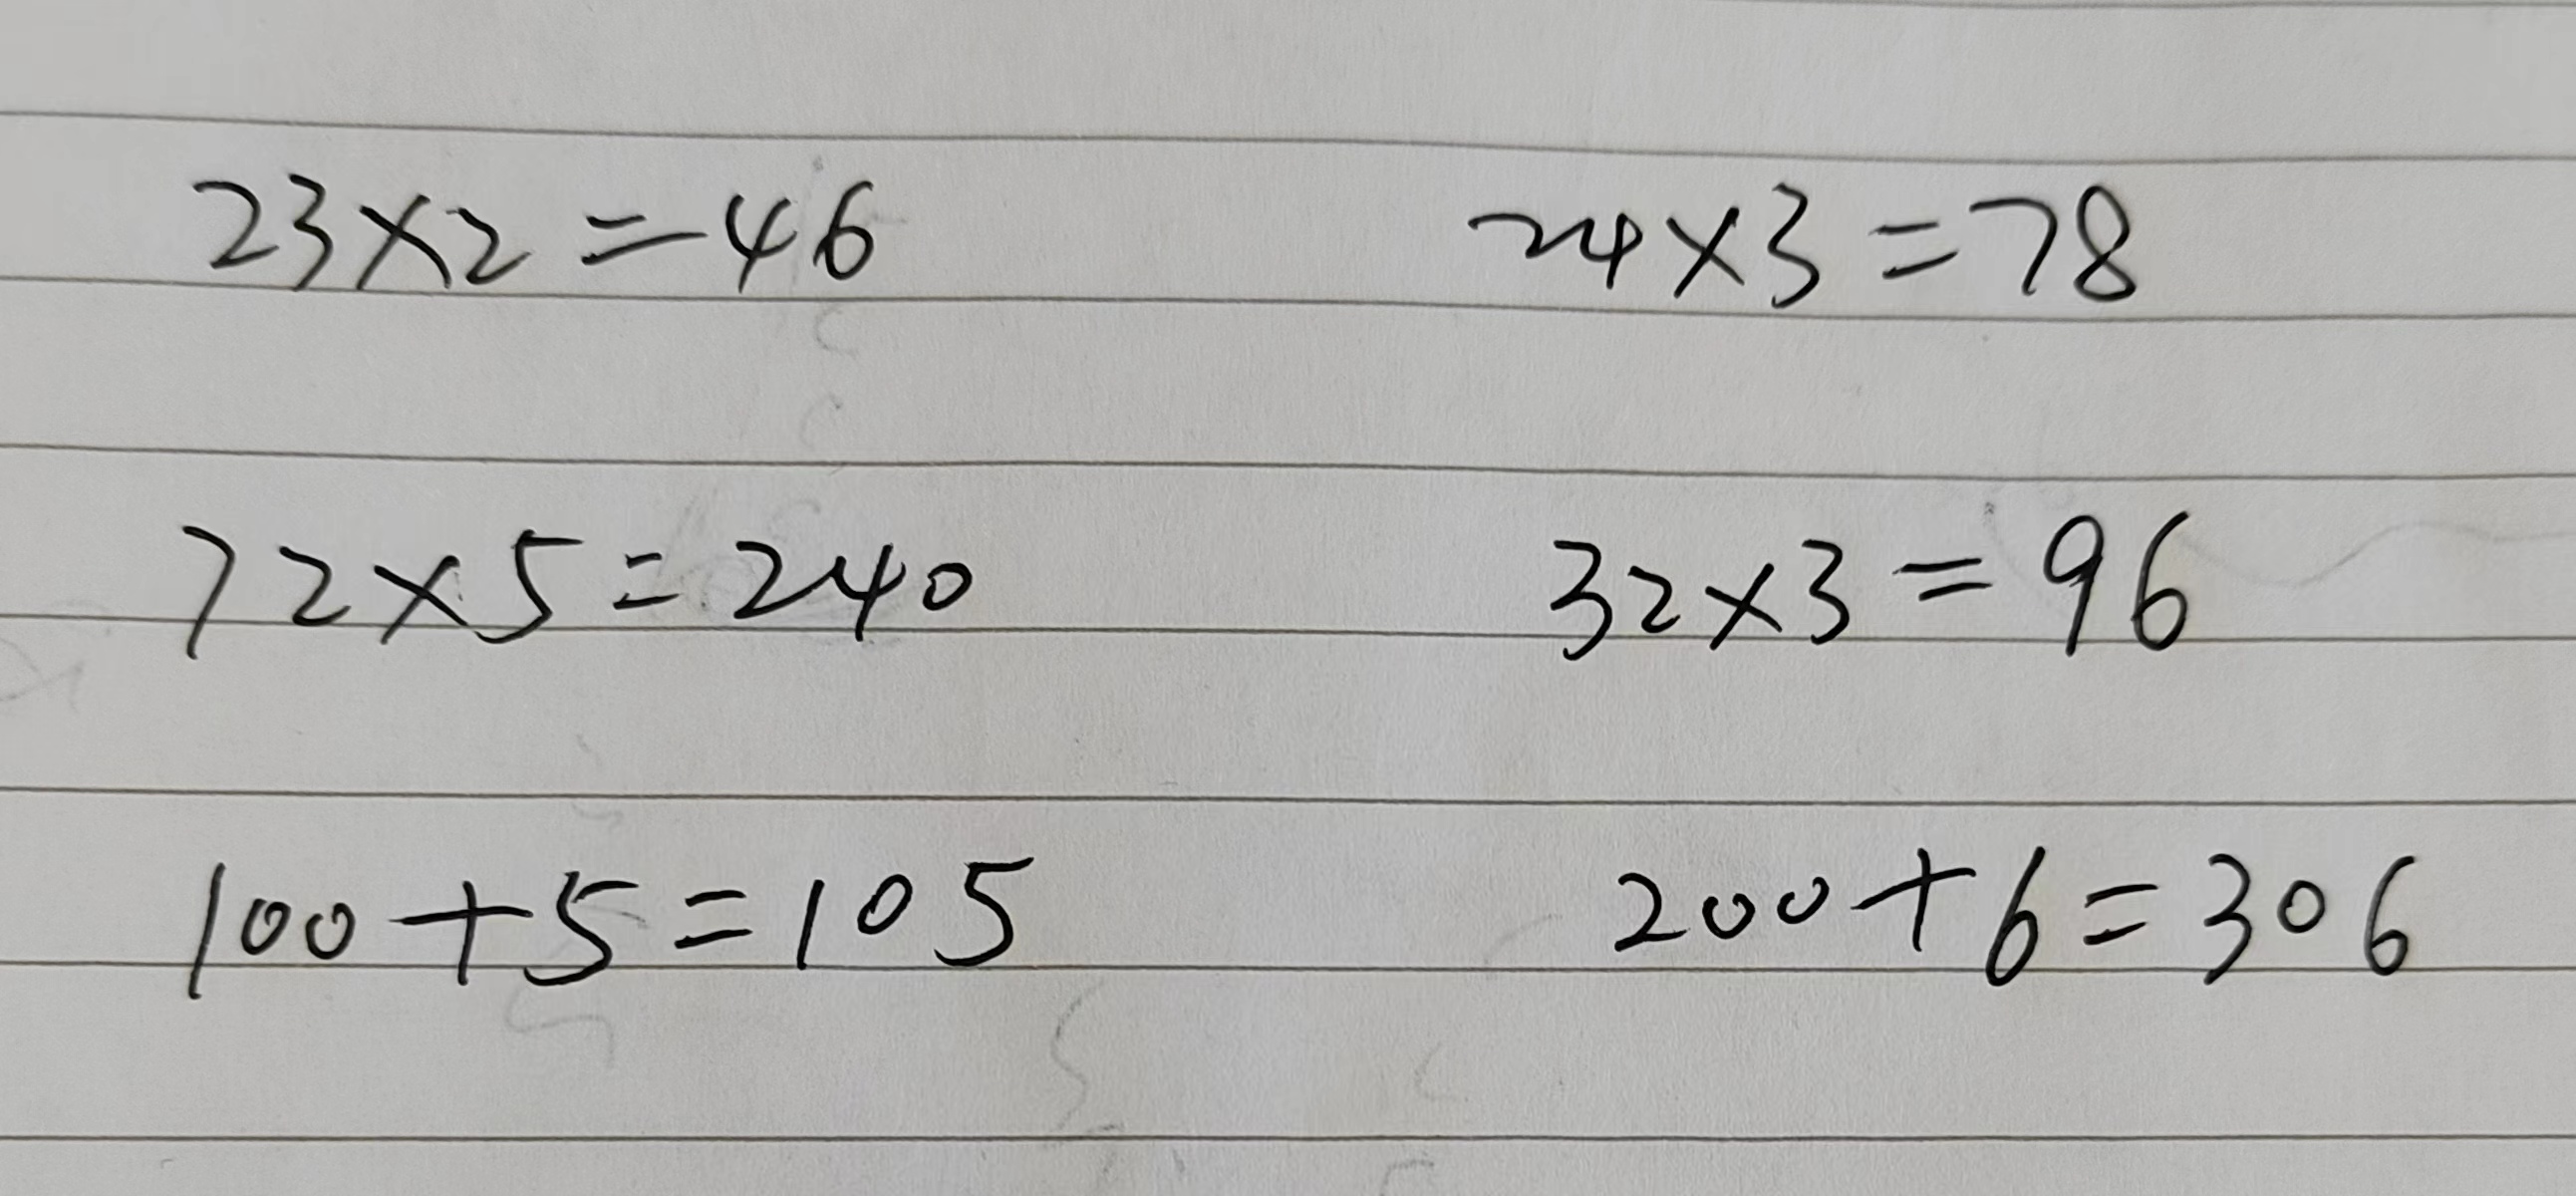 23×2=46 24×3=78
72×5=240 32×3=96
100+5=105 200+6=306